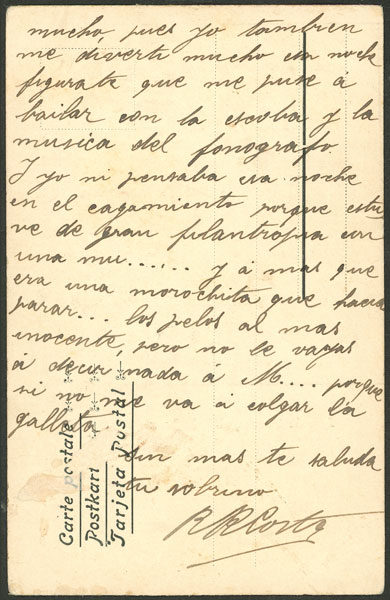 mucho, pues yo tambien
me diverti mucho esa noche
figurate que me puse á
bailar con la escoba y la
musica del fonografo
I yo ni pensaba esa noche
en el casamiento porque estu
ve de gran filantropia con
una mu...... y á mas que
era una morochita que hacia
parar... los pelos al mas
inocente, pero no le vayas
á decir nada á M.... porque
si no me va á colgar la
galleta.
sin mas te saluda
tu sobrino
R R Costa
Carte postale
Postkart
Tarjeta Postal